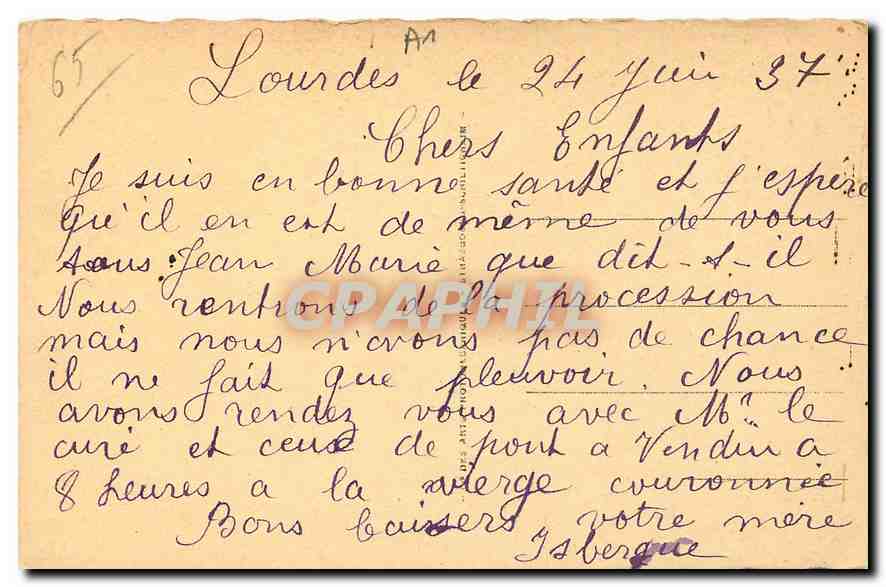 65
A1
Lourdes le 24 Juin 37
Chers Enfants
Je suis en bonne santé et j'espère
qu'il en est de même de vous
tous Jean Marie que dit-t-il
Nous rentrons de la procession
mais nous n'avons pas de chance
il ne fait que pleuvoir. Nous
avons rendez vous avec Mr le
curé et ceux de pont a Vendin a
8 heures a la vierge couronnée
Bons baisers votre mère
Isbergue
CPAPHIL